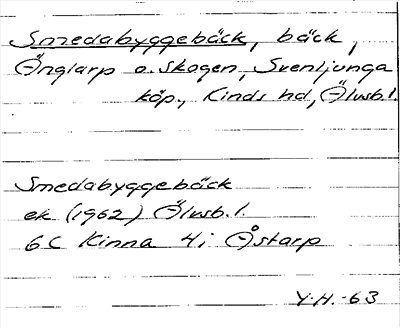 Smedabyggebäck, bäck,
Änglarp o. Skogen, Svenljunga
köp., Kinds hd, Älvsb. l.
Smedabyggebäck
ek (1962) Älvsb. l.
6C Kinna 4i Östarp
Y.H.-63